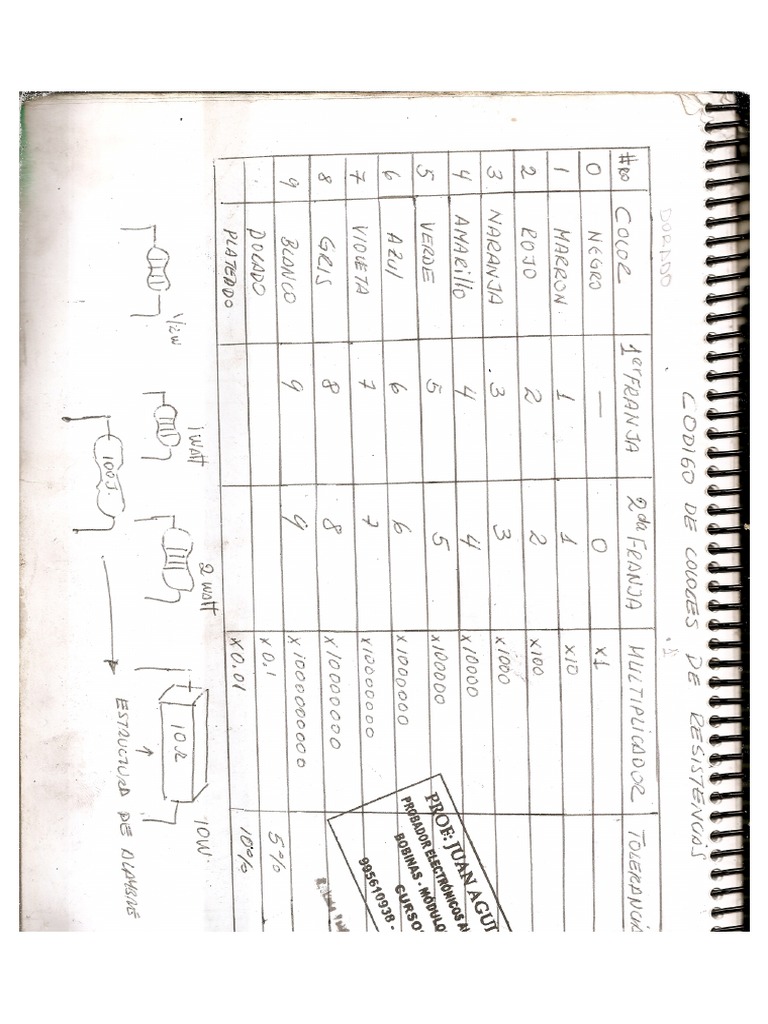 CODIGO DE COLORES DE RESISTENCIAS
DORADO
#RO COLOR 1er FRANJA 2da FRANJA MULTIPLICADOR TOLERANCIA
0 NEGRO — 0 x1
1 MARRON 1 1 x10
2 ROJO 2 2 x100
3 NARANJA 3 3 x1000
4 AMARillo 4 4 x10000
5 VERDE 5 5 x100000
6 AZUL 6 6 x1000000
7 VIOLETA 7 7 x10000000
8 GRIS 8 8 x100000000
9 BLANCO 9 9 x1000000000
DORADO x0.1 5%
PLATEADO x0.01 10%
PROF: JUAN AGUI
PROBADOR ELECTRÓNICOS A
BOBINAS - MÓDULO
CURSO
995610938 -
1/2W 1 WATT 2 WATT 10W
10Ω
100J.
ESTRUCTURA DE ALAMBRE